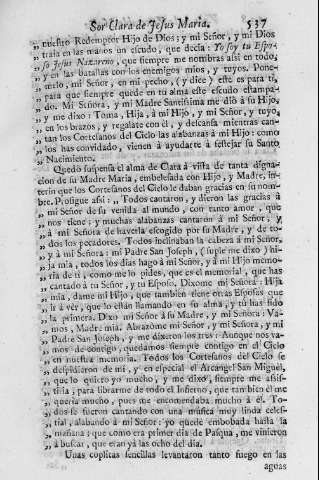 Sor Clara de Jesus Maria. 537
„ nuestro Redemptor Hijo de Dios; y mi Señor, y mi Dios
„ traìa en las manos un escudo, que decia: Yo soy tu Espo-
„ so Jesus Nazareno, que siempre me nombras asi en todo;
„ y en las batallas con los enemigos mios, y tuyos. Pone-
„ melo, mi Señor, en mi pecho, (y dice) este es para ti,
„ para que siempre quede en tu alma este escudo estampa-
„ do. Mi Señora, y mi Madre Santissima me diò à su Hijo,
„ y me dixo: Toma, Hija, à mi Hijo, y mi Señor, y tuyo,
„ en los brazos, y regalate con èl, y descansa mientras can-
„ tan los Cortesanos del Cielo las alabanzas à mi Hijo: como
„ los has convidado, vienen à ayudarte à festejar su Santo
„ Nacimiento.
Quedò suspensa el alma de Clara à vista de tanta digna-
cion de su Madre Maria, embelesada con Hijo, y Madre, in-
terin que los Cortesanos del Cielo le daban gracias en su nom-
bre. Prosigue asi: „ Todos cantaron, y dieron las gracias à
„ mi Señor de su venida al mundo, con tanto amor, que
„ nos tiene; y muchas alabanzas cantaron à mi Señor, y
„ à mi Señora de haverla escogido por su Madre, y de to-
„ dos los pecadores. Todos inclinaban la cabeza à mi Señor,
„ y à mi Señora: mi Padre San Joseph, ( supe me dixo ) hi-
„ ja mia, todos los dias hago à mi Señor, y à mi Hijo memo-
„ ria de ti, como me lo pides, que es el memorial, que has
„ cantado à tu Señor, y tu Esposo. Dixome mi Señora: Hija
„ mia, dame mi Hijo, que tambien tiene otras Esposas que
„ ir à vèr, que lo están llamando en su alma, y tu has sido
„ la primera. Dixo mi Señor à su Madre, y mi Señora: Va-
„ mos, Madre mia. Abrazòme mi Señor, y mi Señora, y mi
„ Padre San Joseph, y me dixeron los tres: Aunque nos va-
„ mos de contigo, quedamos siempre contigo en el Cielo
„ en nuestra memoria. Todos los Cortesanos del Cielo se
„ despidieron de mi, y en especial el Arcangel San Miguèl,
„ que lo quiero yo mucho, y me dixo, siempre me asis-
„ tiria; para librarme de todo el Infierno, que tambien èl me
„ queria mucho, pues me encomendaba mucho à èl. To-
„ dos se fueron cantando con una musica muy linda celes-
„ tial, alabando à mi Señor: yo quedè embobada hasta la
„ mañana; que como era primer dia de Pasqua, me vinieron
„ à buscar, que eran yà las ocho del dia.
Unas coplicas sencillas levantaron tanto fuego en las
aguas